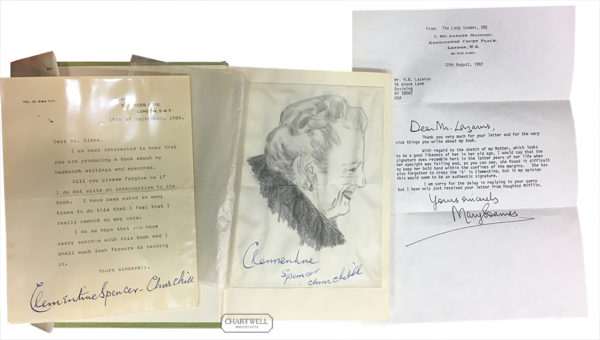 19th of September, 1968.
Dear Mr. Gibbs,
I am most interested to hear that
you are producing a book about my
husband's writings and speeches.
Will you please forgive me if
I do not write an introduction to the
book. I have been asked so many
times to do this that I feel that I
really cannot do any more.
I do so hope that you have
every success with this book and I
shall much look forward to reading
it.
Yours sincerely,
Clementine Spencer-Churchill
Clementine
Spencer
Churchill
CHARTWELL
From: The Lady Soames, DBE
LONDON, W.8.
12th August, 1982
Mr. H.B. Lazerus
Ossining
NY 10562
USA
Dear Mr. Lazerus,
Thank you very much for your letter and for the very
nice things you write about my book.
With regard to the sketch of my Mother, which looks
to be a good likeness of her in her old age, I would say that the
signature does resemble hers in the latter years of her life when
her eyesight was failing and, as you can see, she found it difficult
to keep her bold hand within the confines of the margins. She has
also forgotten to cross the 't' in Clementine, but in my opinion
this would seem to be an authentic signature.
I am sorry for the delay in replying to your query
but I have only just received your letter from Houghton Mifflin.
Yours sincerely
Mary Soames